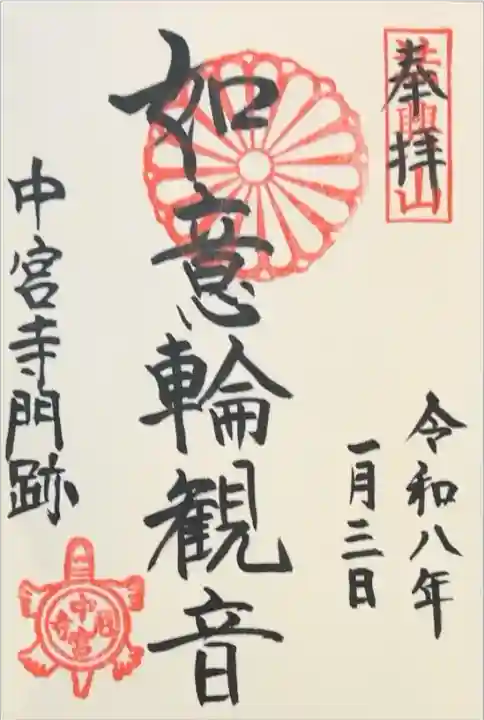 奉拝
法興山
令和八年
一月三日
如意輪観音
中宮寺門跡
中宮寺